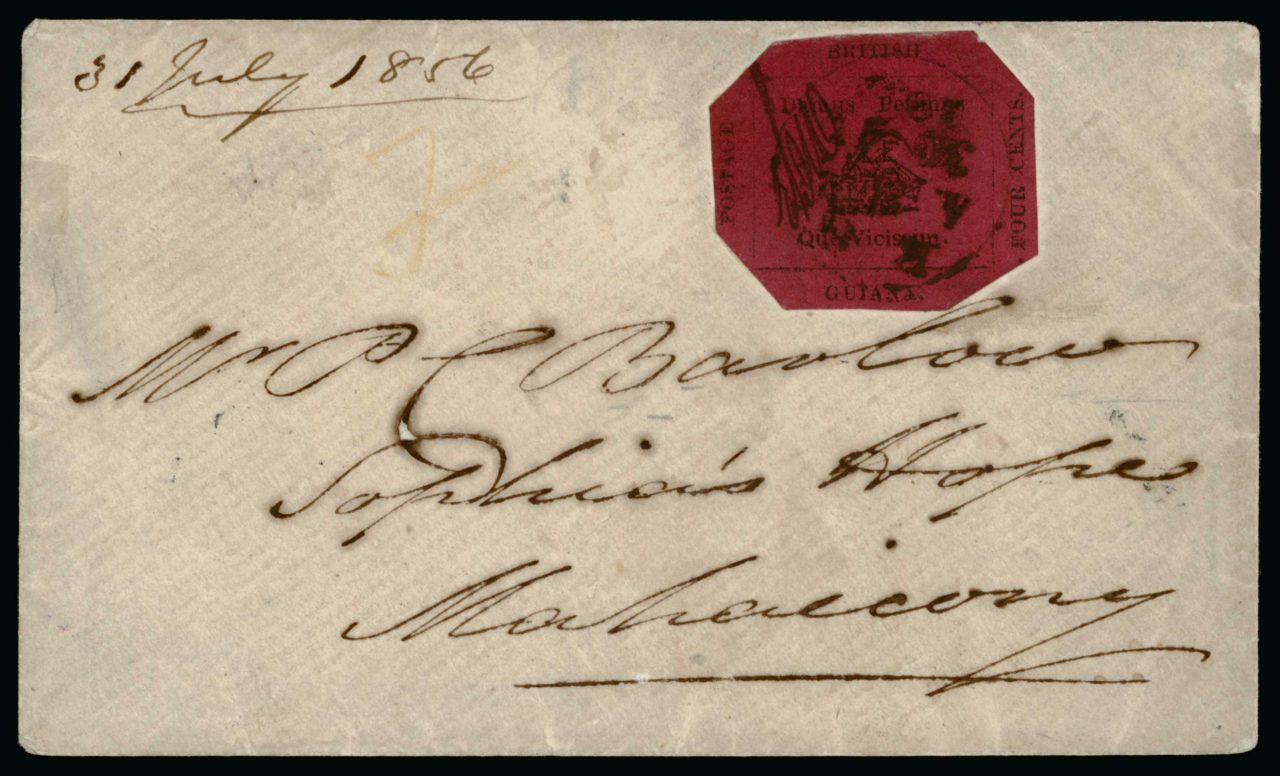 31 July 1856
BRITISH
Damus Petimus
POSTAGE
FOUR CENTS.
Que Vicissim.
GUIANA.
Mr P C Barlow
Sophia's Hope
Mahaicony